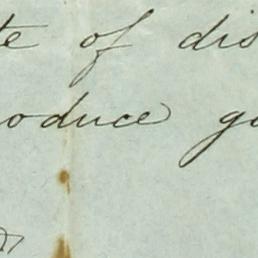 te of dis
oduce gu